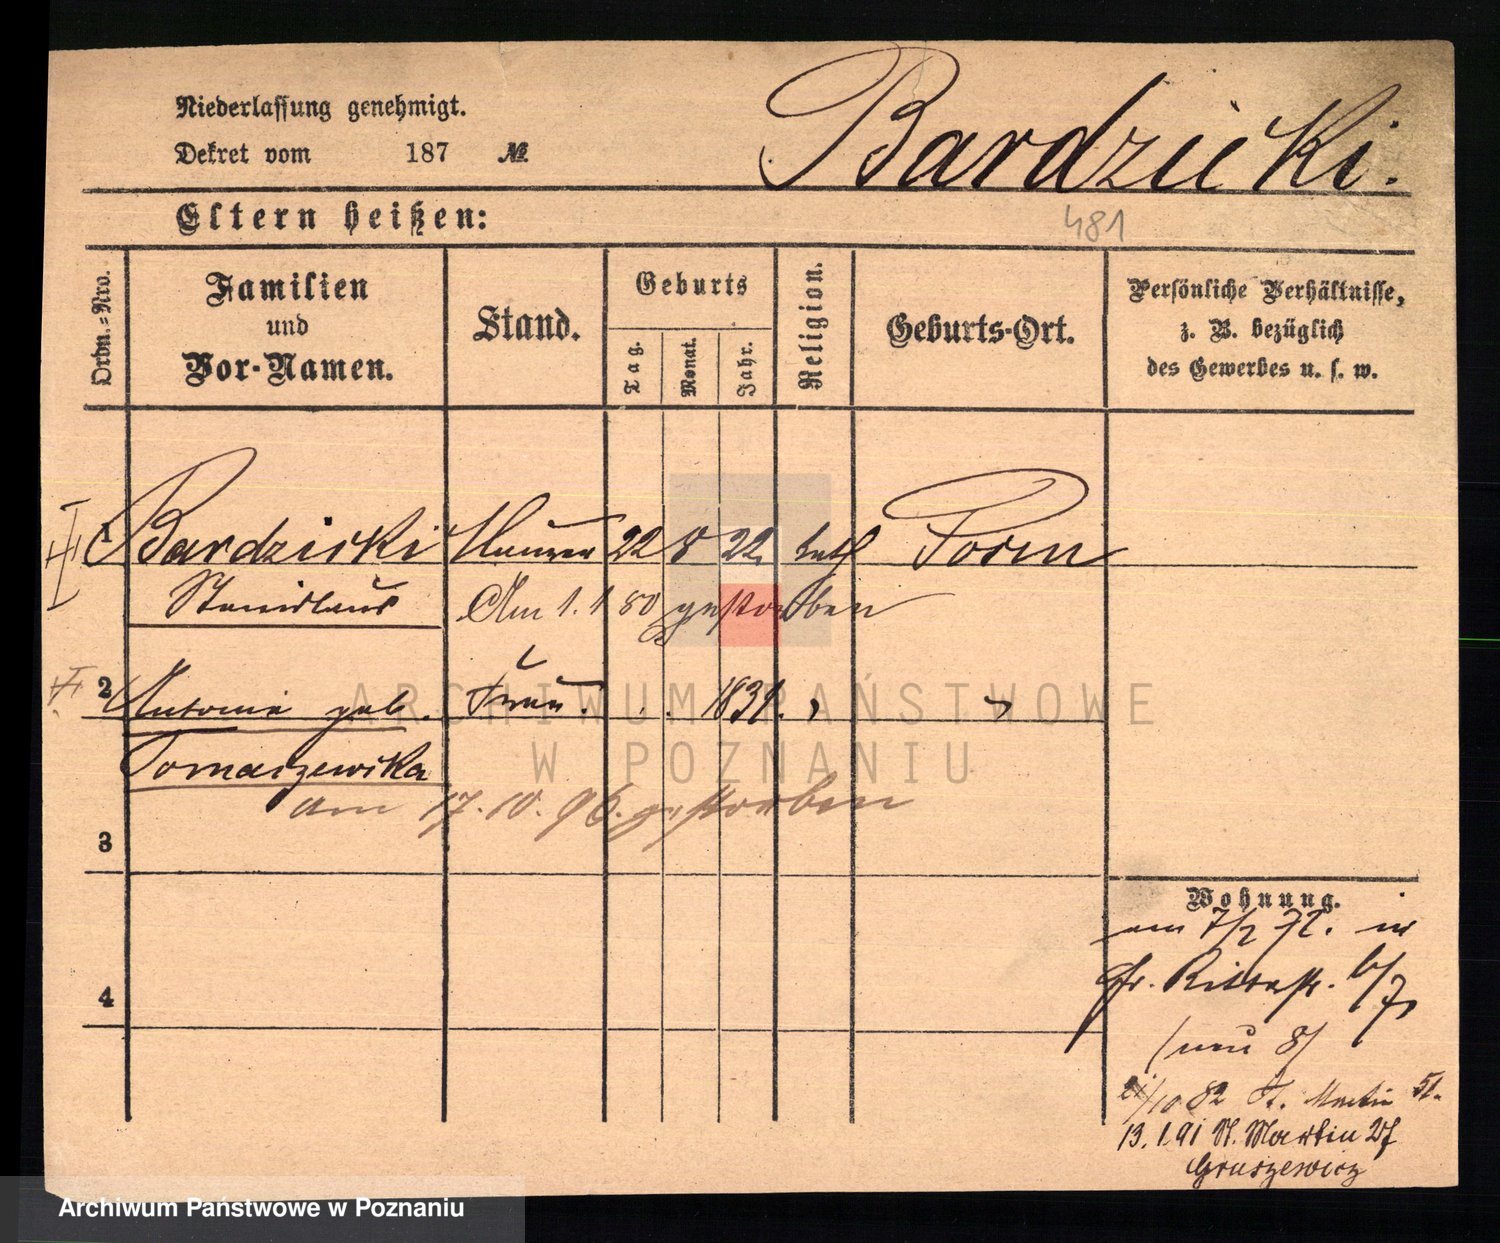 Niederlassung genehmigt.
Dekret vom 187 №
Bardzicki.
Eltern heißen:
481
Ordn.-Nro.
Familien
und
Vor-Namen.
Stand.
Geburts
Tag.
Monat.
Jahr.
Religion.
Geburts-Ort.
Persönliche Verhältnisse,
z. B. bezüglich
des Gewerbes u. s. w.
1 Bardzicki Maurer 22 8 22 kath Posen
Stanislaus Am 1. 1 80 gestorben
2 Antonie geb. Frau. 1831.
Tomaszewska
am 17. 10. 96. gestorben
3
4
Wohnung.
am 7/2 72. in
Gr. Ritterstr. 6/7
(neu 8)
/10 82 St. Martin 51.
13. 1. 91 St. Martin 27
Gruszewicz
ARCHIWUM PAŃSTWOWE
W POZNANIU
Archiwum Państwowe w Poznaniu